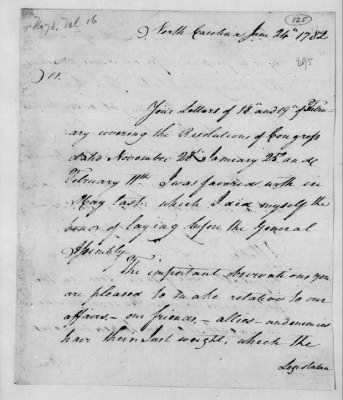 (125)
North Carolina June 24th 1782
295
Sir.
Your Letters of 18th and 19th of Febru-
ary covering the Resolutions of Congress
dated November 28th January 25th and
February 11th I was favored with in
May last. which I did myself the
honor of laying before the General
Assembly.
The important observations you
are pleased to make relation to our
affairs, - our friends, - allies - and enemies
have their Just weight, which the
Legislature